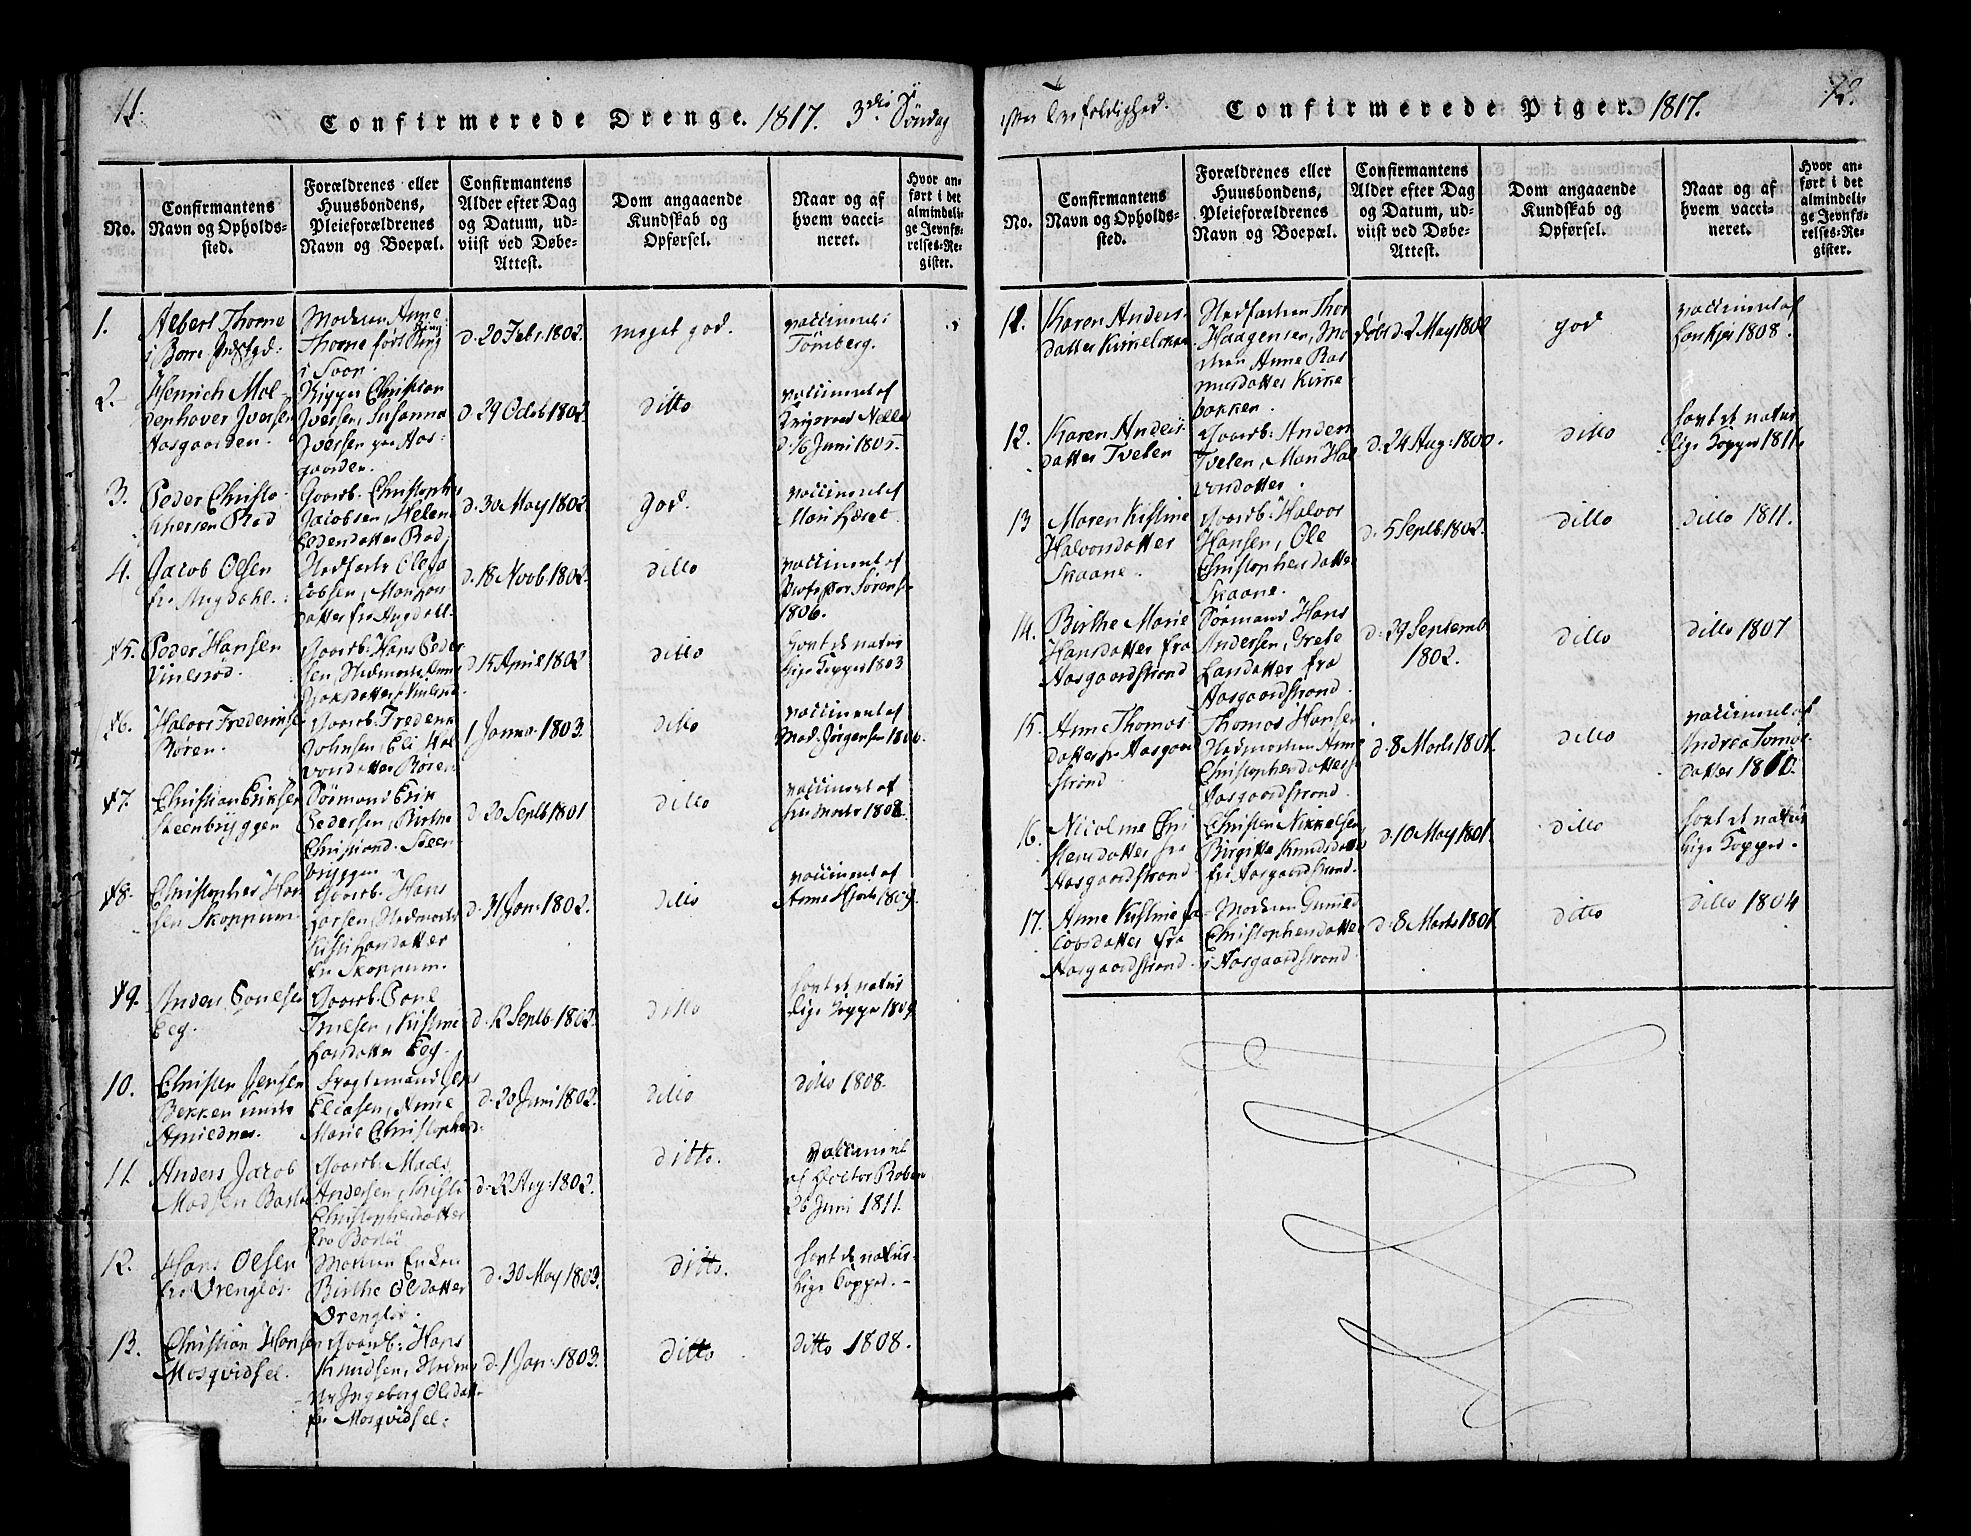 11.
Confirmerede Drenge. 1817. 3die Søndag
No.
Confirmantens
Navn og Opholds-
sted.
Forældrenes eller
Huusbondens,
Pleieforældrenes
Navn og Boepæl.
Confirmantens
Alder efter Dag
og Datum, ud-
viist ved Døbe-
Attest.
Dom angaaende
Kundskab og
Opførsel.
Naar og af
hvem vacci-
neret.
Hvor an-
ført i det
almindeli-
ge Jevnfø-
relses-Re-
gister.
1.
Albert Thorne
i Borre
Moderen Anne
Thorne født Ring
i Soon.
d. 20 Febr. 1802.
meget god.
vaccineret i
Tönsberg.
2.
Henrich Mol-
denhover Iversen
Aasgaarden.
Rigger Christian
Iversen, Susanna
Iversen paa Aas-
gaarden.
d. 29 Octob. 1802.
ditto
vaccineret af
d. 16 Juni 1805.
3.
Peder Christo-
phersen Rød
Gaardb. Christopher
Jacobsen, Helene
Pedersdatter Rød
d. 30 May 1802.
god.
vaccineret af
4.
Jacob Olsen
fra Augdahl.
Stedfader Ole Ja-
cobsen,
datter fra Augdahl.
d. 18 Novb. 1802.
ditto
vaccineret af
Professor Sørens-
1806.
5.
Peder Hansen
Vinesrød.
Gaardb. Hans Peder-
sen,
d. 15 April 1802
ditto
havt de natur
lige Kopper 1803
6.
Halvor Fredericsen
Røren.
Gaardb. Frederik
Johnsen, Eli Hal-
vorsdatter Røren
1 Janua. 1803.
ditto
vaccineret af
Mad. Jørgensen 1806.
7.
Christian Eriksen
Steenbryggen
Sømand Erik
Pedersen, Birthe
Christiansd. Steen-
bryggen
d. 20 Septb 1801
ditto
vaccineret af
1808.
8.
Christopher Han-
sen Skoppum.
Gaardb. Hans
Larsen, Stedmoder
Kisti Larsdatter
fra Skoppum.
d. 31 Jan. 1802.
ditto
vaccineret af
Anne 1809.
9.
Anders Poulsen
Eeg.
Gaardb. Poul
Truelsen, Kistine
Larsdatter Eeg.
d. 12 Septb. 1802.
ditto
havt de natur
lige Kopper 1809
10.
Christen Jensen
Bekken under
Fragtemand Jens
Eliasen, Anne
Marie Christophersd.
d. 20 Juni 1802.
ditto
ditto 1808.
11
Anders Jacob
Madsen
Gaardb. Mads
Andersen, Kristi
Christophersdatter
d. 22 Aug. 1802.
ditto.
vaccineret
af Doctor
26 Juni 1811.
12.
Hans Olsen
fra Vrengløs.
Moderen Enken
Birthe Olsdatter
Vrengløs.
d. 30 May 1803.
ditto.
havt de natur-
lige Kopper.
13.
Christian Hansen
Mosqvidsel.
Gaardb. Hans
Knudsen, Stedmo-
der Ingeborg Olsdat.
fr Mosqvidsel.
d. 1 Jan. 1803.
ditto
ditto 1808.
12.
efter Trefoldighed.
Confirmerede Piger. 1817.
No.
Confirmantens
Navn og Opholds-
sted.
Forældrenes eller
Huusbondens,
Pleieforældrenes
Navn og Boepæl.
Confirmantens
Alder efter Dag
og Datum, ud-
viist ved Døbe-
Attest.
Dom angaaende
Kundskab og
Opførsel.
Naar og af
hvem vacci-
neret.
Hvor an-
ført i det
almindeli-
ge Jevnfø-
relses-Re-
gister.
12.
Karen Anders-
datter Kirkebakken
Stedfaderen Thor
Haagensen, Mo-
deren Anne Ras-
musdatter Kirke
bakken.
døbt d. 2 May 1802
god
vaccineret af
1808.
12.
Karen Anders-
datter Tveten
Gaardb. Anders
Tveten, Mari Hal
vorsdatter.
d. 24 Aug. 1800.
ditto
havt de natur
lige Kopper 1811.
13
Maren Kistine
Halvorsdatter
Skaane.
Gaardb. Halvor
Hansen, Ole
Christophersdatter
Skaane.
d. 5 Septb. 1802.
ditto
ditto 1811.
14.
Birthe Marie
Hansdatter fra
Aasgaardstrand
Sømand Hans
Andersen, Grete
Larsdatter fra
Aasgaardstrand.
d. 29 Septemb
1802.
ditto
ditto 1807
15.
Anne Thomas
datter fr Aasgaard
strand
Thomas Hansen
Stedmoderen Anne
Christophersdatter
Aasgaardstrand.
d. 8 Marts 1801.
ditto
vaccineret af
Andrea
datter 1810.
16.
Nicoline Chri
stensdatter fra
Aasgaardstrand
Christen Nikkelsen
Birgitte Knudsdatter
fra Aasgaardstrand.
d. 10 May 1801.
ditto
havt de natur
lige Kopper.
17.
Anne Kistine Ja
cobsdatter fra
Aasgaardstrand.
Moderen Gunild
Christophersdatter
i Aasgaardstrand.
d. 8 Marts 1801.
ditto
ditto 1804